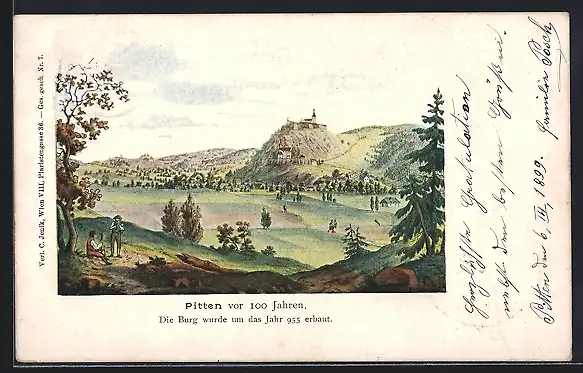 Verl. C. Jenik, Wien VIII, Piaristengasse 36. — Ges. gesch. Nr. 7.
Pitten vor 100 Jahren.
Die Burg wurde um das Jahr 955 erbaut.
Herzlichste Gratulation
nebst den besten Grüßen.
Pitten den 6. III. 1899. Familie Posch